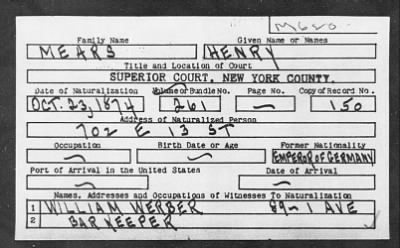 M620
Family Name Given Name or Names
MEARS HENRY
Title and Location of Court
SUPERIOR COURT, NEW YORK COUNTY.
Date of Naturalization Volume or Bundle No. Page No. Copy of Record No.
OCT. 23, 1874 261 — 150
Address of Naturalized Person
702 E 13 ST
Occupation Birth Date or Age Former Nationality
— — EMPEROR OF GERMANY
Port of Arrival in the United States Date of Arrival
— —
Names, Addresses and Occupations of Witnesses To Naturalization
1 WILLIAM WERBER 89-1 AVE
2 BAR KEEPER